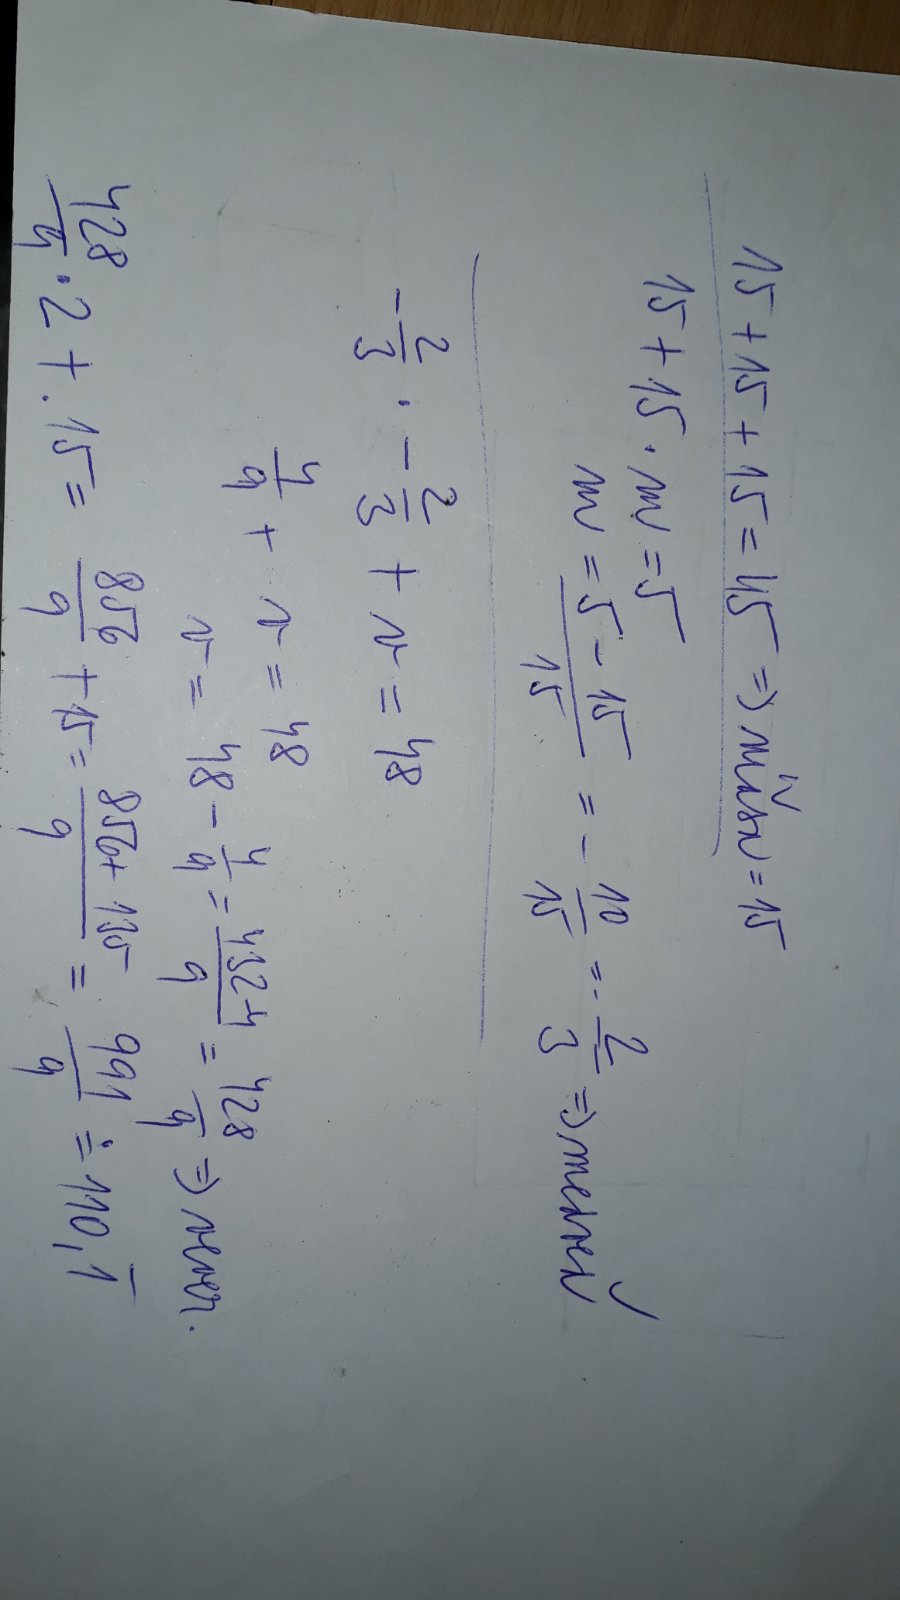 15 + 15 + 15 = 45 ⇒ = 15
15 + 15 · m = 5
m = (5 - 15)/15 = - 10/15 = - 2/3 ⇒ medveď
- 2/3 · - 2/3 + v = 48
4/9 + v = 48
v = 48 - 4/9 = (432-4)/9 = 428/9 ⇒ vever.
428/9 · 2 + 15 = 856/9 + 15 = (856+135)/9 = 991/9 ≐ 110,1̅